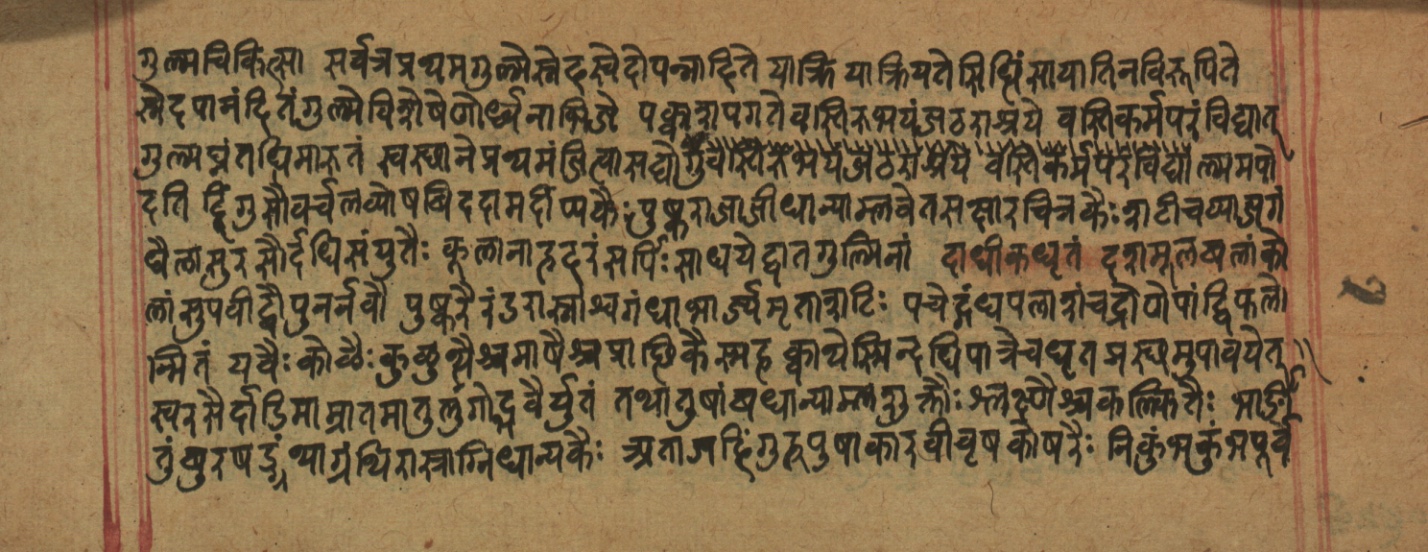 गुल्मचिकित्सा सर्वत्रप्रथमगुल्मेस्नेहस्वेदोपन्नादिते याक्रिया क्रियतेसिद्धिंसायातिनविरूपिते
स्नेदपानंहितंगुल्मेविशेषेणोर्ध्वनाभिजे पक्वाशपगतेवस्तिरुभयंजठराश्रये वस्तिकर्मपरंविद्यात्
गुल्मघ्नंतद्धिमारुतं स्वस्थानेप्रथमंजित्वासद्यो ल्ममपो
दति हिंगुसौवर्चलव्योषबिददामदीप्यकैः पुष्कराजाजीधान्याम्लवेतसक्षारचित्रकैः शटीवचाजगं
धैलासुरसौर्दधिसंयुतैः शूलानाहहरंसर्पिः साधयेद्वातगुल्मिनां दाधीकघृतं दशमूलबलांको
लांसुषवीद्वौपुनर्नवौ पुष्करैरंडरास्नाश्वगंधाभार्ज्यमृताशटिः पचेद्गंधपलाशंचद्रोपोपांद्विपले
न्मितं यवैः कोलैः कुलुत्थैश्चमाषैश्चप्रास्थिकैस्मह क्वाथेस्मिन्दधिपात्रेचघृतप्रस्थमुपाचयेत्
स्वरसैर्दाडिमाम्रातमातुलुंगोद्भवैर्युतं तथातुषांबुधान्याम्लशुक्तैः श्लक्ष्णैश्चकल्कितैः भार्ङ्गी
तुंबुरुषड्ग्रंथाग्रंथिरास्नाग्निधान्यकैः हिंगुहपुषाकारवीवृषकोषरैः निकुंभकुंभपूर्व